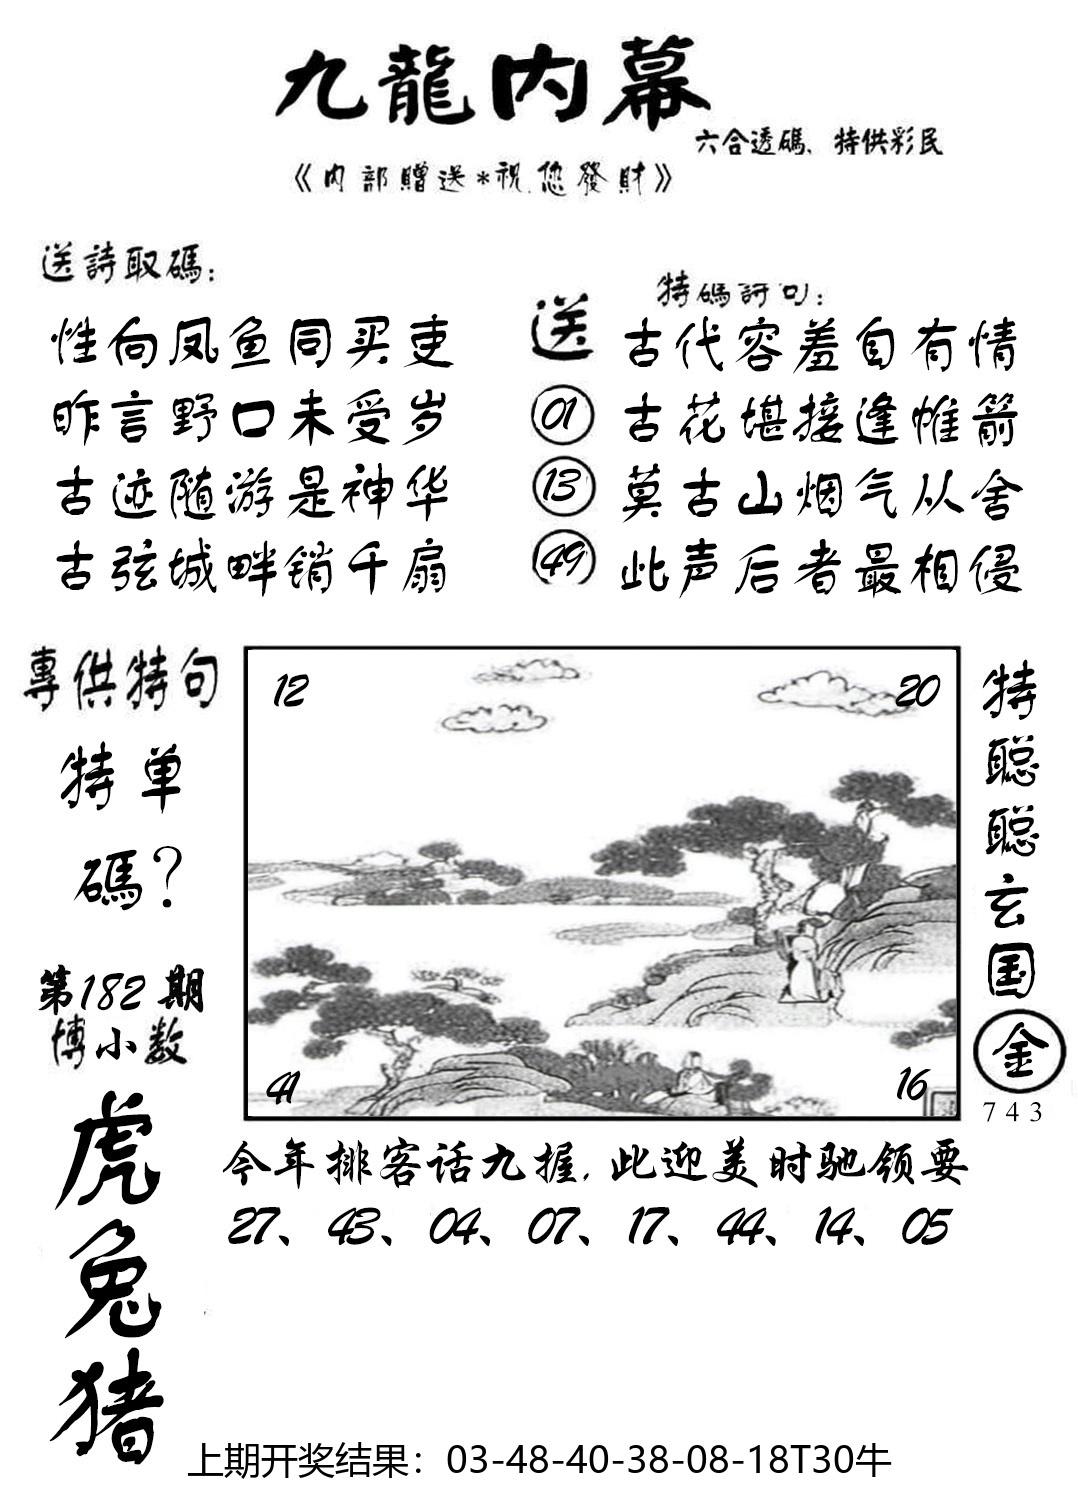 九龍内幕
六合透碼、特供彩民
《内部贈送*祝您發財》
送詩取碼:
性向凤鱼同买吏
昨言野口未受岁
古迹随游是神华
古弦城畔销千扇
送
01
13
49
特碼詩句:
古代容羞自有情
古花堪接逢惟箭
莫古山烟气从舍
此声后者最相侵
專供特句
特单
碼?
第182期
博小数
虎
兔
猪
12
20
41
16
特聪聪玄国金
743
今年排客话九握,此迎美时驰领要
27、43、04、07、17、44、14、05
上期开奖结果：03-48-40-38-08-18T30牛